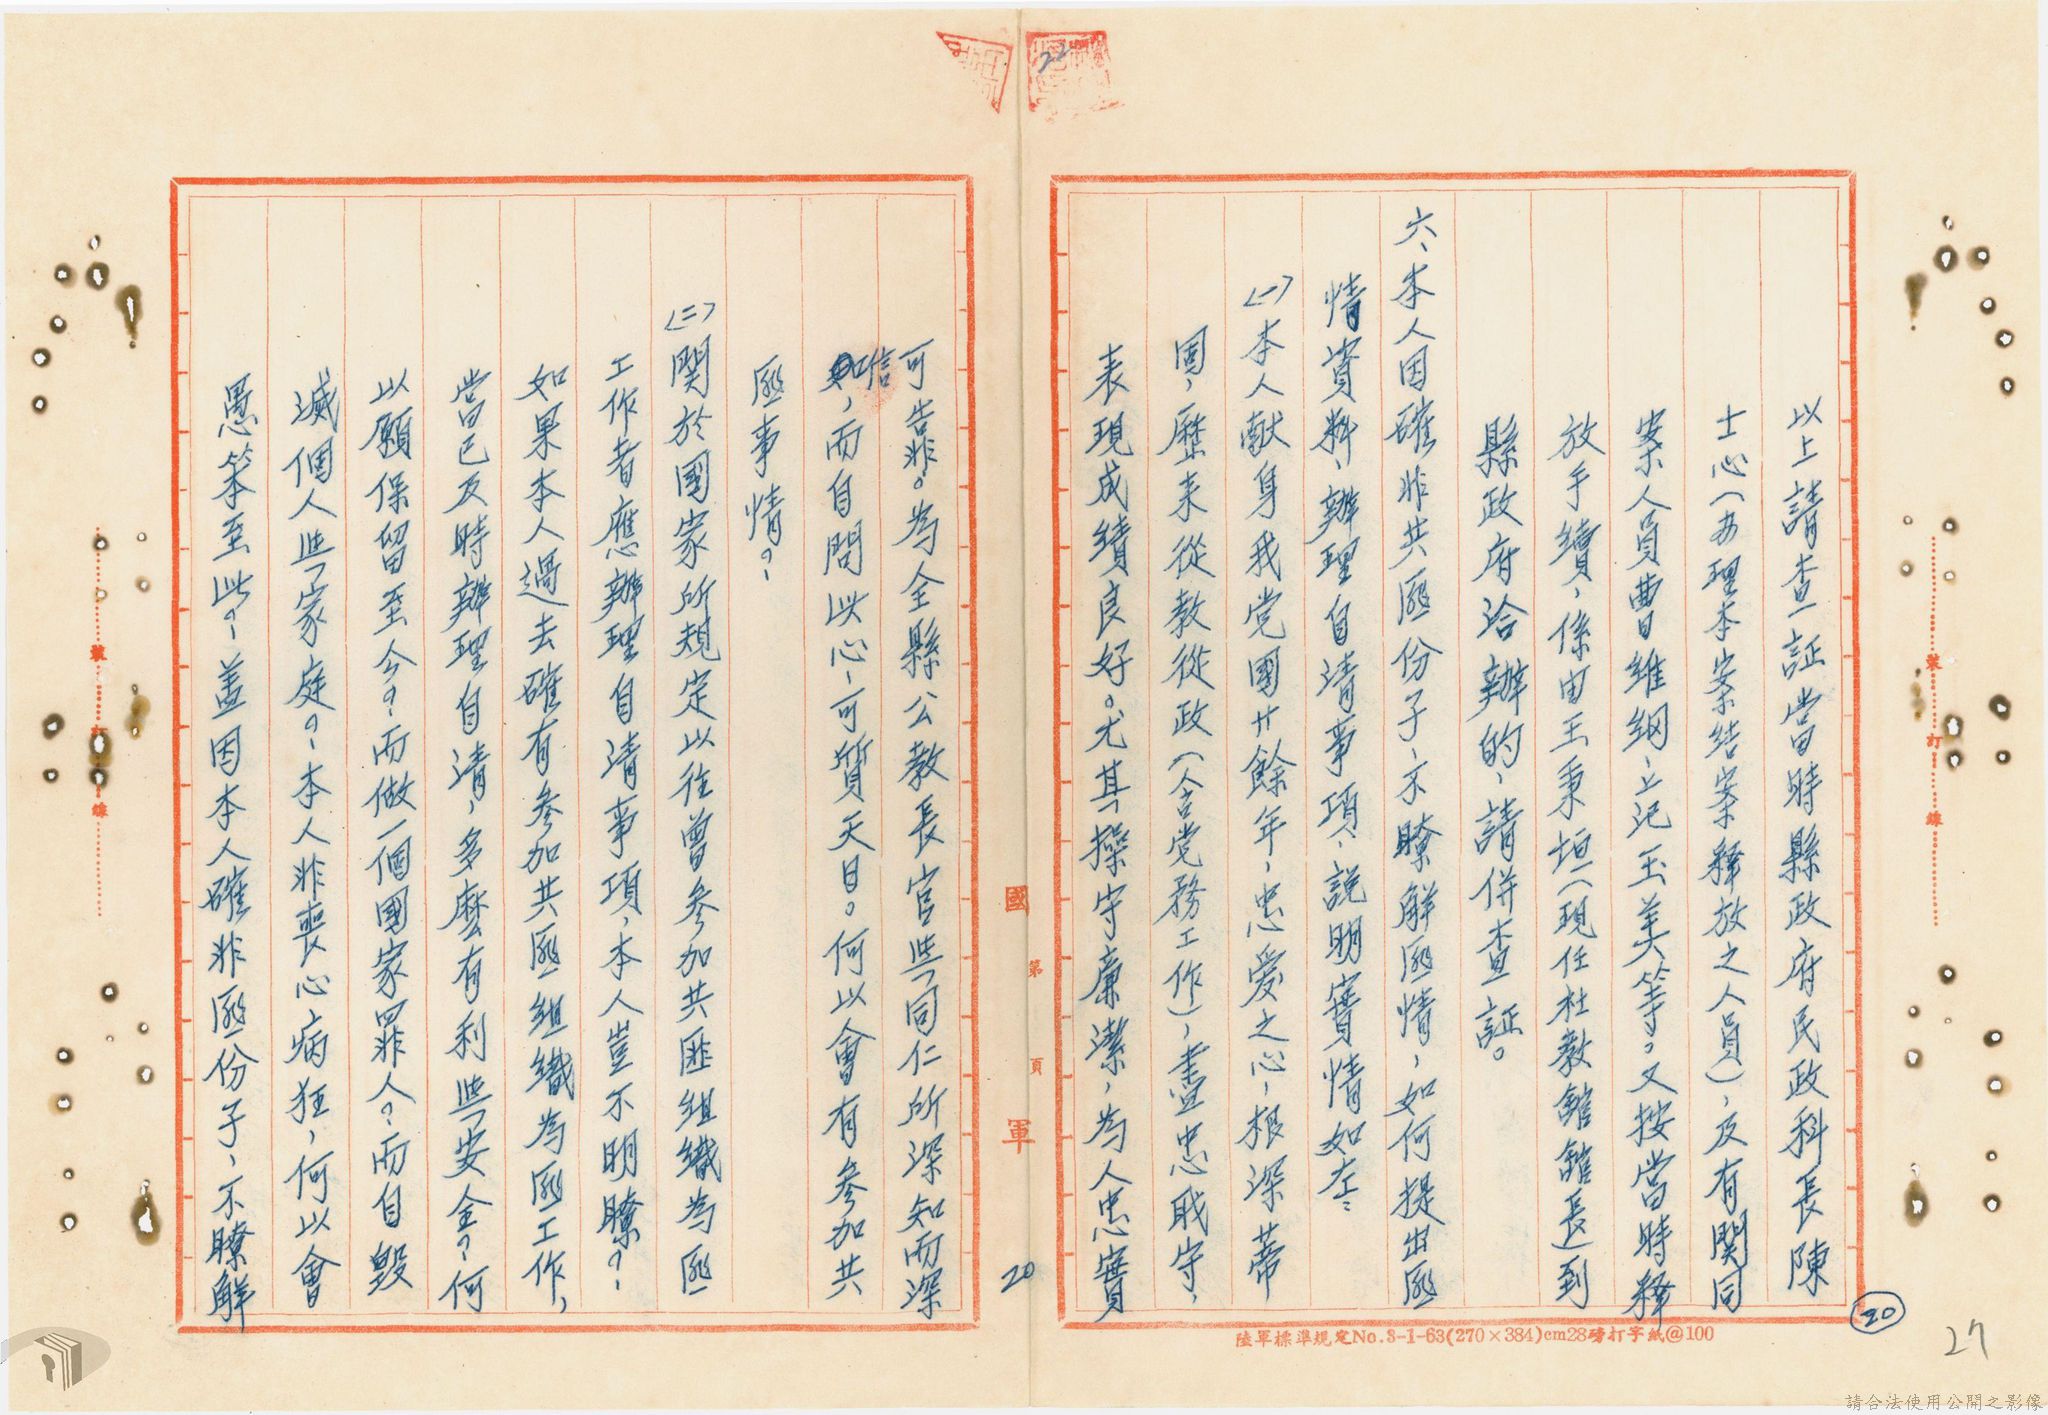 以上請查証當時縣政府民政科長陳
士心(办理本案結案释放之人員),及有関同
案人員曹維綱、上记玉美等。又按當時释
放手續,係由王秉垣(現任社教館館長)到
縣政府洽辦的,請併查証。
六、本人因確非共匪份子、不瞭解匪情,如何提出匪
情資料,辦理自清事項、說明實情如左:
〈一〉本人献身我党國廿餘年,忠爱之心,根深蒂
固,歷来從教從政(含党務工作),盡忠职守,
表現成績良好。尤其操守廉潔,為人忠實
可靠。為全縣公教長官與同仁所深知而深
信,而自問此心,可質天日。何以會有参加共
匪事情?
〈二〉関於國家所規定以往曾参加共匪組織為匪
工作者應辦理自清事項,本人豈不明瞭?
如果本人過去確有参加共匪組織為匪工作,
當已及時辦理自清,多麽有利與安全?何
以願保留至今?而做一個國家罪人?而自毀
滅個人與家庭?本人非喪心病狂,何以會
愚笨至此?蓋因本人確非匪份子,不瞭解
國軍
第 頁
20
20
27
22
裝訂線
裝訂線
陸軍標準規定No.3-1-63(270×384)cm28磅打字紙@100
請合法使用公開之影像